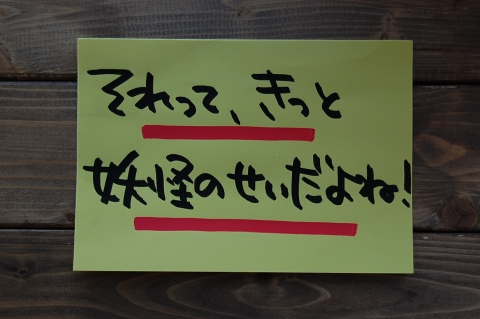 それって、きっと
妖怪のせいだよね!